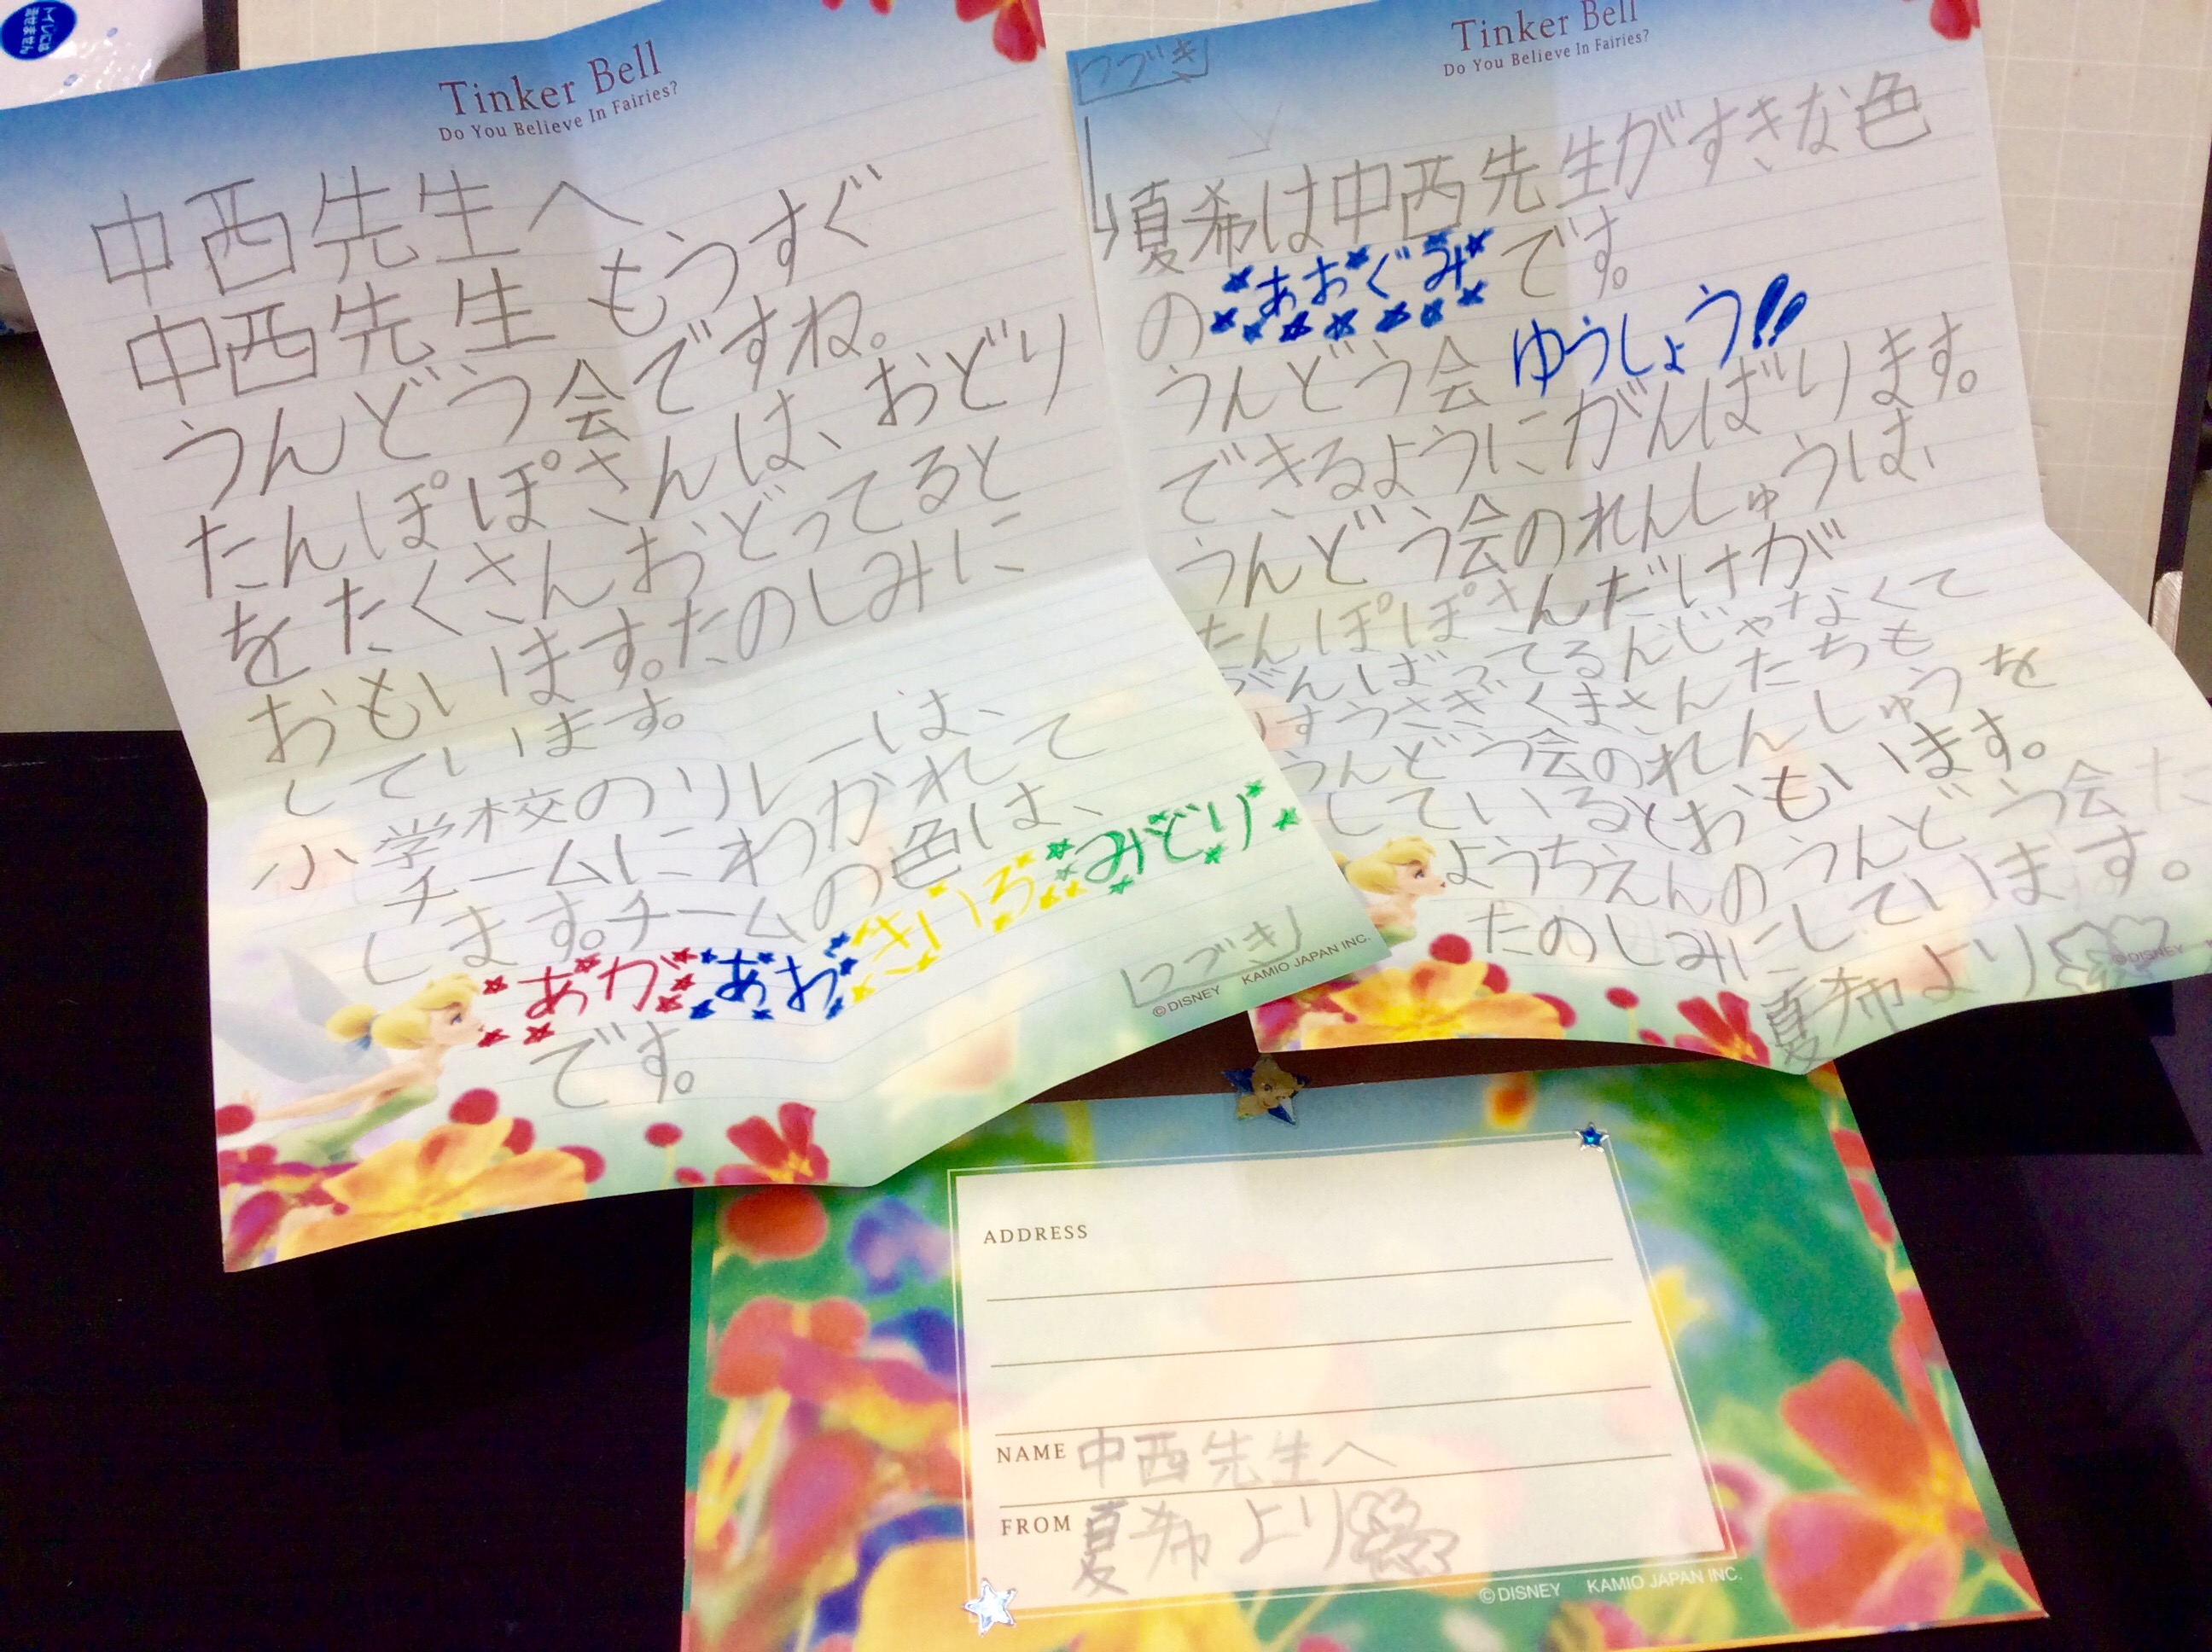 Tinker Bell
Do You Believe In Fairies?
中西先生へ
中西先生 もうすぐ
うんどう会ですね。
たんぽぽさんは、おどり
をたくさんおどってると
おもいます。たのしみに
しています。
小学校のリレーは、
チームにわかれて
します。チームの色は、
あかあおきいろみどり
です。
つづき
©DISNEY KAMIO JAPAN INC.
Tinker Bell
Do You Believe In Fairies?
つづき
夏希は中西先生がすきな色
のあおぐみです。
うんどう会ゆうしょう!!
できるようにがんばります。
うんどう会のれんしゅうは、
たんぽぽさんだけが
がんばってるんじゃなくて
うさぎくまさんたちも
うんどう会のれんしゅうを
しているとおもいます。
ようちえんのうんどう会
たのしみにしています。
夏希より
©DISNEY
ADDRESS
NAME 中西先生へ
FROM 夏希より
©DISNEY KAMIO JAPAN INC.